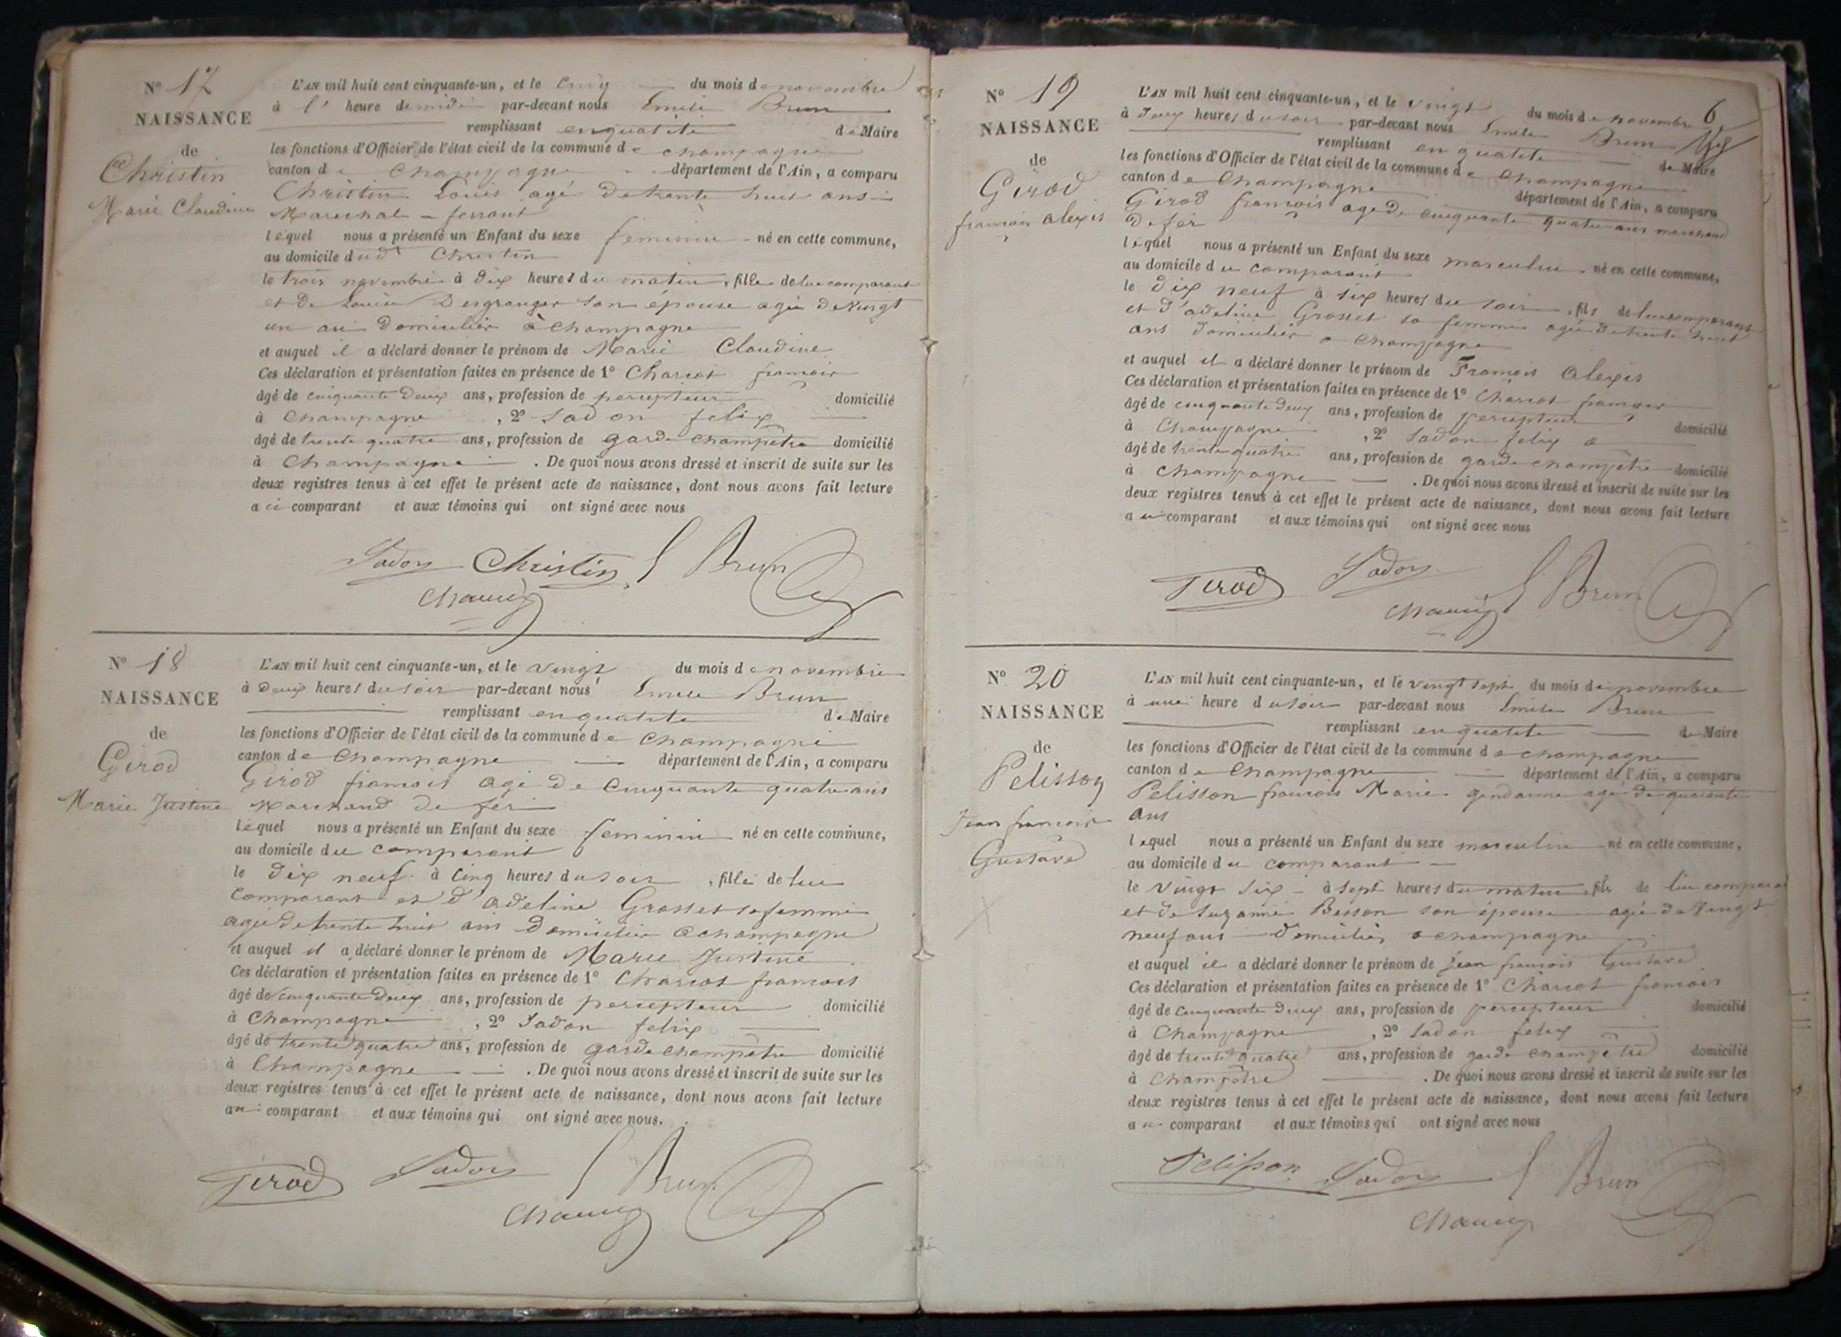 N° 17
NAISSANCE
de
Christin
Marie Claudine
L'AN mil huit cent cinquante-un, et le cinq du mois de novembre
à l' heure de midi par-devant nous Emile Brun
remplissant en qualité de Maire
les fonctions d'Officier de l'état civil de la commune de champagne
canton de champagne département de l'Ain, a comparu
Christin Louis agé de trente huit ans
Marechal - ferrant
lequel nous a présenté un Enfant du sexe feminin né en cette commune,
au domicile dud Christin
le trois novembre à dix heures du matin, fille de lui comparant
et de Louise Desgranges son épouse agée de vingt
un ans domiciliés à champagne
et auquel il a déclaré donner le prénom de Marie Claudine
Ces déclaration et présentation faites en présence de 1° Charcot francois
âgé de cinquante deux ans, profession de percepteur domicilié
à champagne, 2° Sadon felix
âgé de trente quatre ans, profession de garde champêtre domicilié
à Champagne. De quoi nous avons dressé et inscrit de suite sur les
deux registres tenus à cet effet le présent acte de naissance, dont nous avons fait lecture
au comparant et aux témoins qui ont signé avec nous
Sadon Christin E Brun
N° 18
NAISSANCE
de
Girod
Marie Justine
L'AN mil huit cent cinquante-un, et le vingt du mois de novembre
à deux heures du soir par-devant nous Emile Brun
remplissant en qualité de Maire
les fonctions d'Officier de l'état civil de la commune de champagne
canton de champagne département de l'Ain, a comparu
Girod francois agé de cinquante quatre ans
Marchand de fer
lequel nous a présenté un Enfant du sexe feminin né en cette commune,
au domicile du comparant
le dix neuf à cinq heures du soir, fille de lui
comparant et d'adeline Grosset sa femme
agée de trente huit ans domiciliés a champagne
et auquel il a déclaré donner le prénom de Marie Justine
Ces déclaration et présentation faites en présence de 1° Charcot francois
âgé de cinquante deux ans, profession de percepteur domicilié
à Champagne, 2° Sadon felix
âgé de trente quatre ans, profession de garde champêtre domicilié
à Champagne. De quoi nous avons dressé et inscrit de suite sur les
deux registres tenus à cet effet le présent acte de naissance, dont nous avons fait lecture
au comparant et aux témoins qui ont signé avec nous.
Girod Sadon E Brun
6
N° 19
NAISSANCE
de
Girod
francois alexis
L'AN mil huit cent cinquante-un, et le vingt du mois de novembre
à deux heures du soir par-devant nous Emile Brun
remplissant en qualité de Maire
les fonctions d'Officier de l'état civil de la commune de champagne
canton de champagne département de l'Ain, a comparu
Girod francois agé de cinquante quatre ans marchand
de fer
lequel nous a présenté un Enfant du sexe masculin né en cette commune,
au domicile du comparant
le dix neuf à six heures du soir, fils de lui comparant
et d'adeline Grosset sa femme agée de trente huit
ans domiciliés a champagne
et auquel il a déclaré donner le prénom de Francois Alexis
Ces déclaration et présentation faites en présence de 1° Charcot francois
âgé de cinquante deux ans, profession de percepteur domicilié
à Champagne, 2° Sadon felix
âgé de trente quatre ans, profession de garde champêtre domicilié
à champagne. De quoi nous avons dressé et inscrit de suite sur les
deux registres tenus à cet effet le présent acte de naissance, dont nous avons fait lecture
au comparant et aux témoins qui ont signé avec nous
Girod Sadon E Brun
N° 20
NAISSANCE
de
Pelisson
Jean francois
Gustave
L'AN mil huit cent cinquante-un, et le vingt sept du mois de novembre
à une heure du soir par-devant nous Emile Brun
remplissant en qualité de Maire
les fonctions d'Officier de l'état civil de la commune de champagne
canton de champagne département de l'Ain, a comparu
Pelisson francois Marie gendarme agé de quarante
ans
lequel nous a présenté un Enfant du sexe masculin né en cette commune,
au domicile du comparant
le vingt six à sept heures du matin, fils de lui comparant
et de Suzanne Besson son épouse agée de vingt
neuf ans domiciliés a champagne
et auquel il a déclaré donner le prénom de Jean francois Gustave
Ces déclaration et présentation faites en présence de 1° Charcot francois
âgé de cinquante deux ans, profession de percepteur domicilié
à Champagne, 2° Sadon felix
âgé de trente quatre ans, profession de garde champêtre domicilié
à champêtre. De quoi nous avons dressé et inscrit de suite sur les
deux registres tenus à cet effet le présent acte de naissance, dont nous avons fait lecture
au comparant et aux témoins qui ont signé avec nous
Pelisson Sadon E Brun